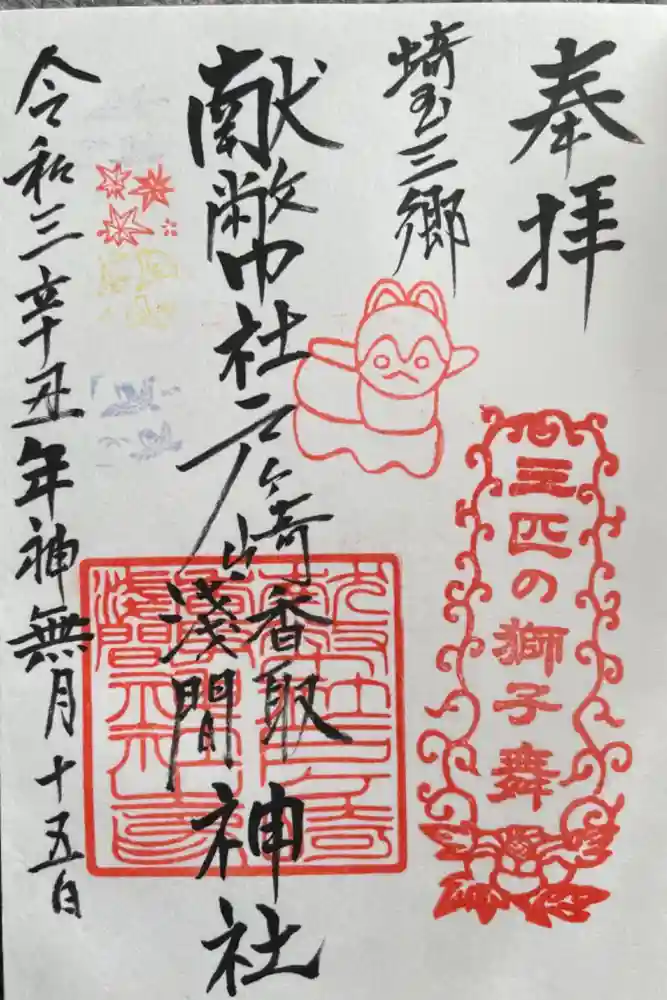 奉拝
三匹の獅子舞
埼玉三郷
献幣社戸ヶ崎香取浅間神社
令和三辛丑年神無月十五日